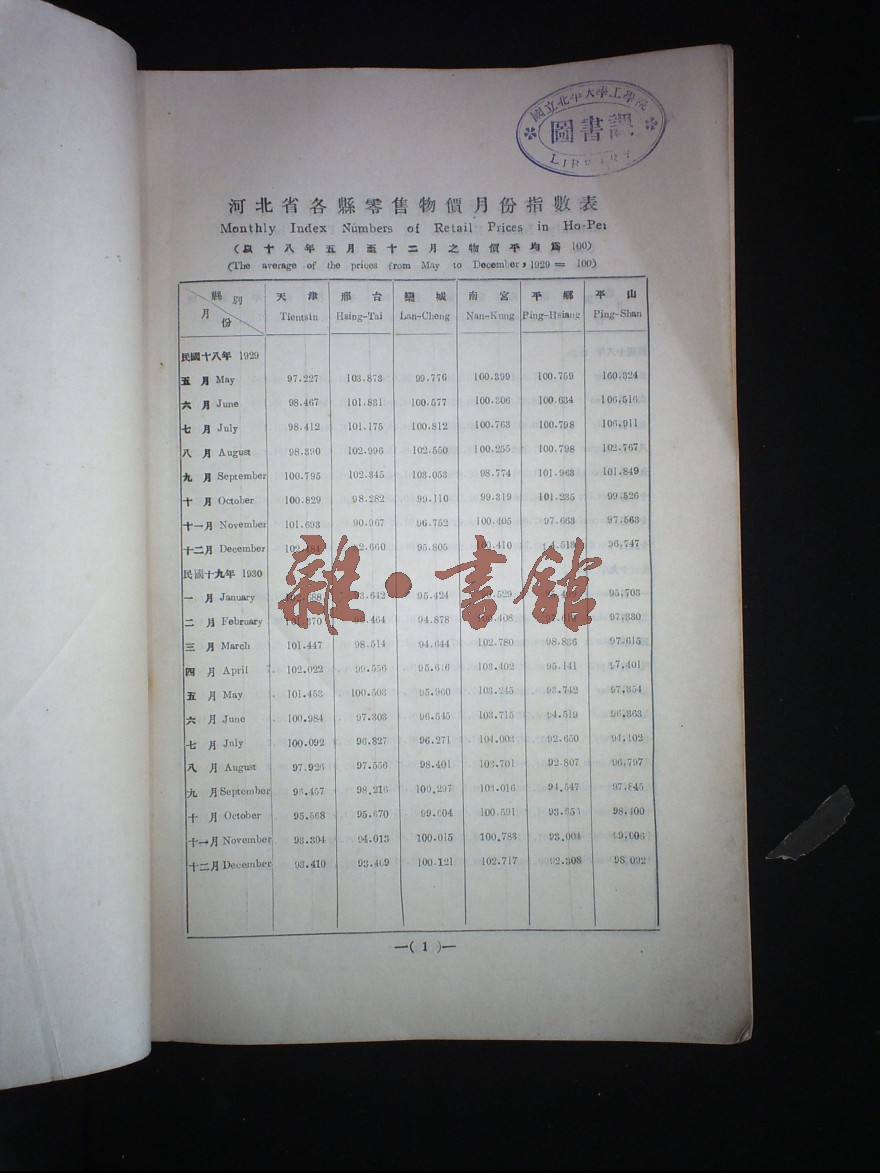 國立北平大學工學院
圖書課
LIBRARY
河北省各縣零售物價月份指數表
Monthly Index Numbers of Retail Prices in Ho-Pei
(以十八年五月至十二月之物價平均為 100)
(The average of the prices from May to December, 1929 = 100)
縣別 天津 邢台 欒城 南宮 平鄉 平山
月份 Tientsin Hsing-Tai Lan-Cheng Nan-Kung Ping-Hsiang Ping-Shan
民國十八年 1929
五月 May 97.227 103.873 99.776 100.399 100.759 100.324
六月 June 98.467 101.831 100.577 100.306 100.634 106.516
七月 July 98.412 101.175 100.812 100.763 100.798 106.911
八月 August 98.390 102.996 102.550 100.255 100.798 102.767
九月 September 100.795 102.345 103.053 98.774 101.963 101.849
十月 October 100.829 98.282 99.110 99.319 101.235 99.526
十一月 November 101.693 90.967 96.752 100.405 97.663 97.563
十二月 December 95.805 96.747
民國十九年 1930
一月 January 95.424 95.703
二月 February 94.878 97.330
三月 March 101.447 98.514 94.644 102.780 98.836 97.615
四月 April 102.022 99.556 95.616 103.402 95.141 97.401
五月 May 101.453 100.503 95.960 103.245 93.742 97.354
六月 June 100.984 97.303 96.545 103.715 94.519 96.363
七月 July 100.092 96.827 96.271 104.003 92.650 94.102
八月 August 97.926 97.556 98.401 103.701 92.807 96.797
九月 September 96.457 98.216 100.297 103.016 94.547 97.845
十月 October 95.568 95.670 99.604 100.591 93.653 98.400
十一月 November 93.304 94.013 100.015 100.783 93.004 99.006
十二月 December 93.410 93.409 100.121 102.717 92.308 98.092
—( 1 )—
雜·書館